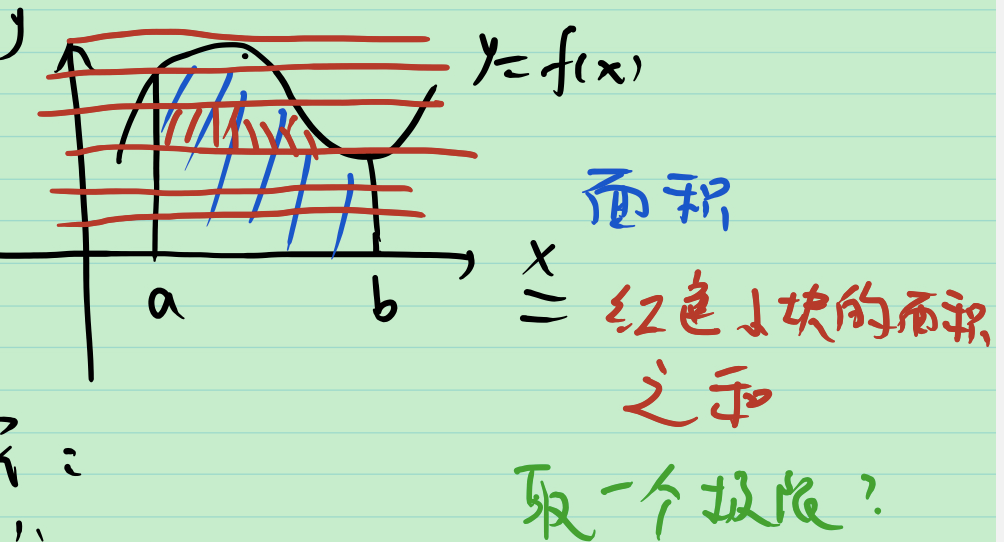 y
y=f(x)
面积
x
a
b
= 红色小块的面积
之和
取一个极限?